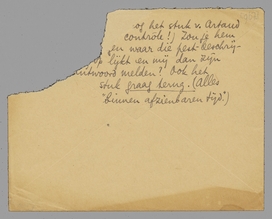 of het stuk v. Artaud
controle!) Zou je hem
en waar die pest-beschrij-
op lijkt en mij dan zijn
antwoord melden? Ook het
stuk graag terug. (Alles
"binnen afzienbaren tijd.")